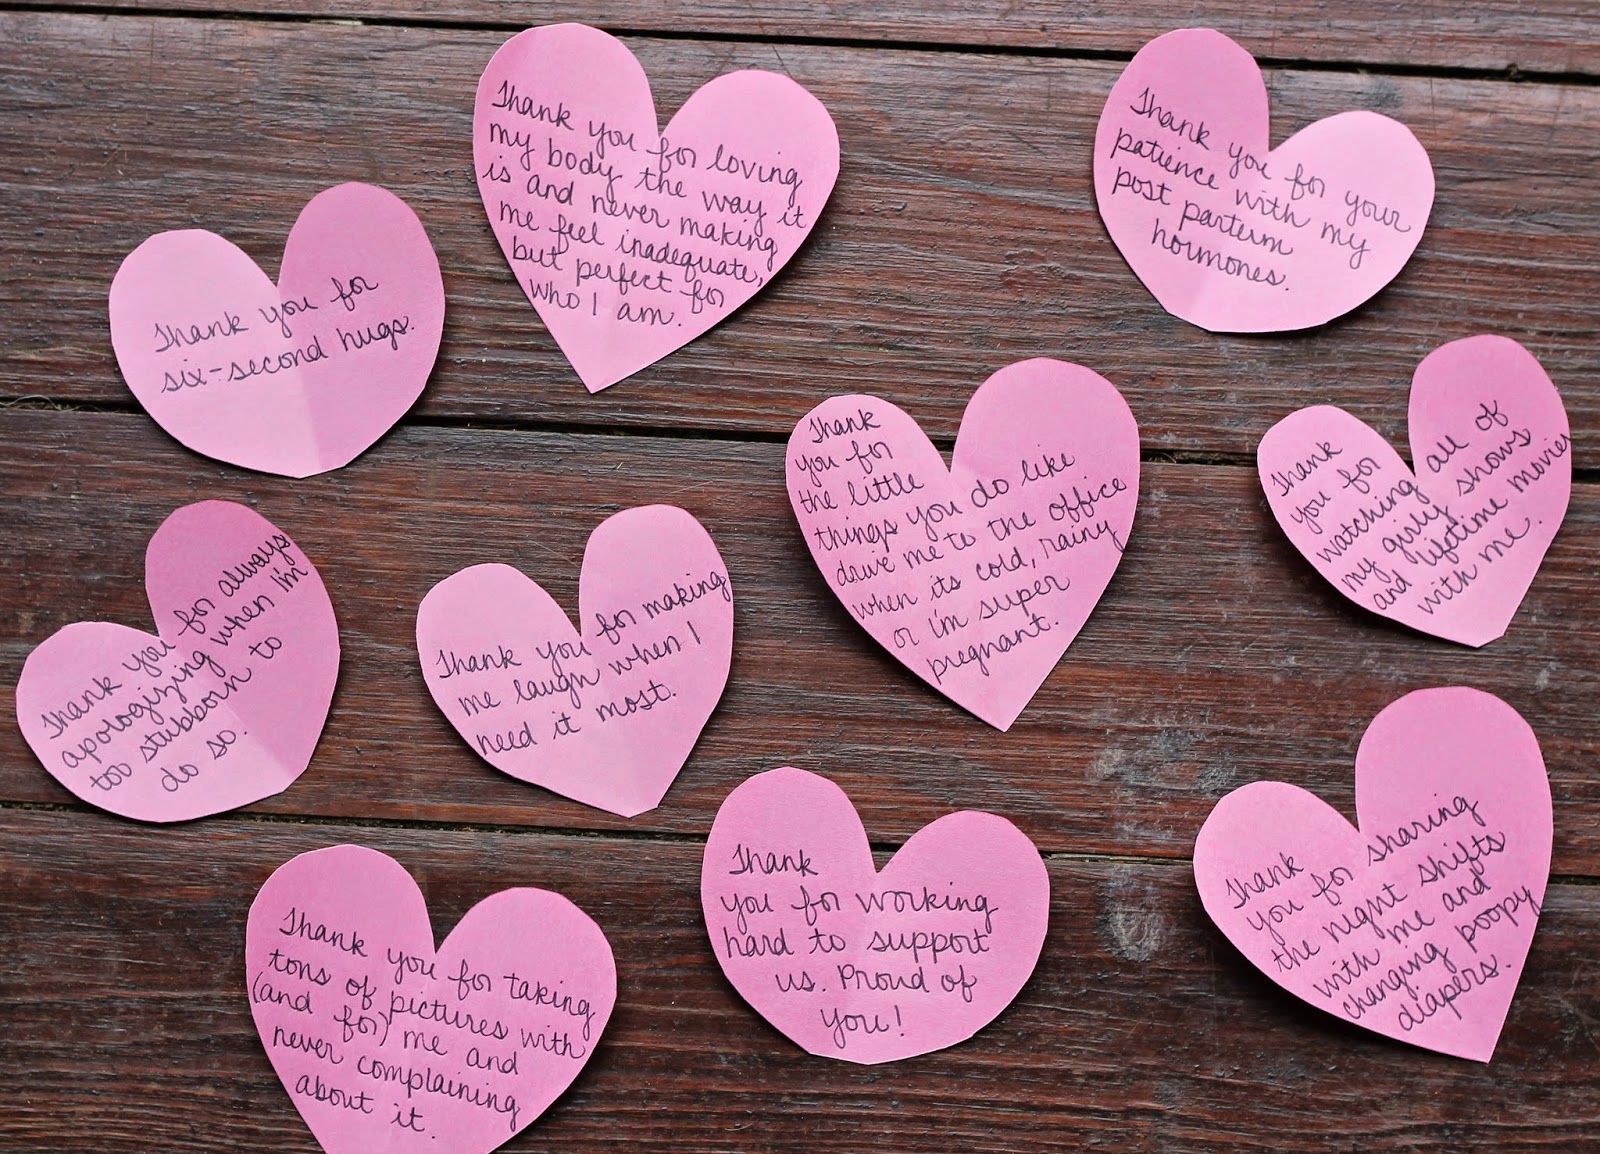 Thank you for loving
my body the way it
is and never making
me feel inadequate,
but perfect for
who I am.
Thank you for your
patience with my
post parterm
hormones.
Thank you for
six-second hugs.
Thank
you for
the little
things you do like
drive me to the office
when its cold, rainy
or i'm super
pregnant.
Thank
you for
watching all of
my girly shows
and lifetime movies
with me.
Thank you for always
apologizing when I'm
too stubborn to
do so.
Thank you for making
me laugh when I
need it most.
Thank
you for working
hard to support
us. Proud of
you!
Thank
you for sharing
the night shifts
with me and
changing poopy
diapers.
Thank you for taking
tons of pictures with
(and for) me and
never complaining
about it.